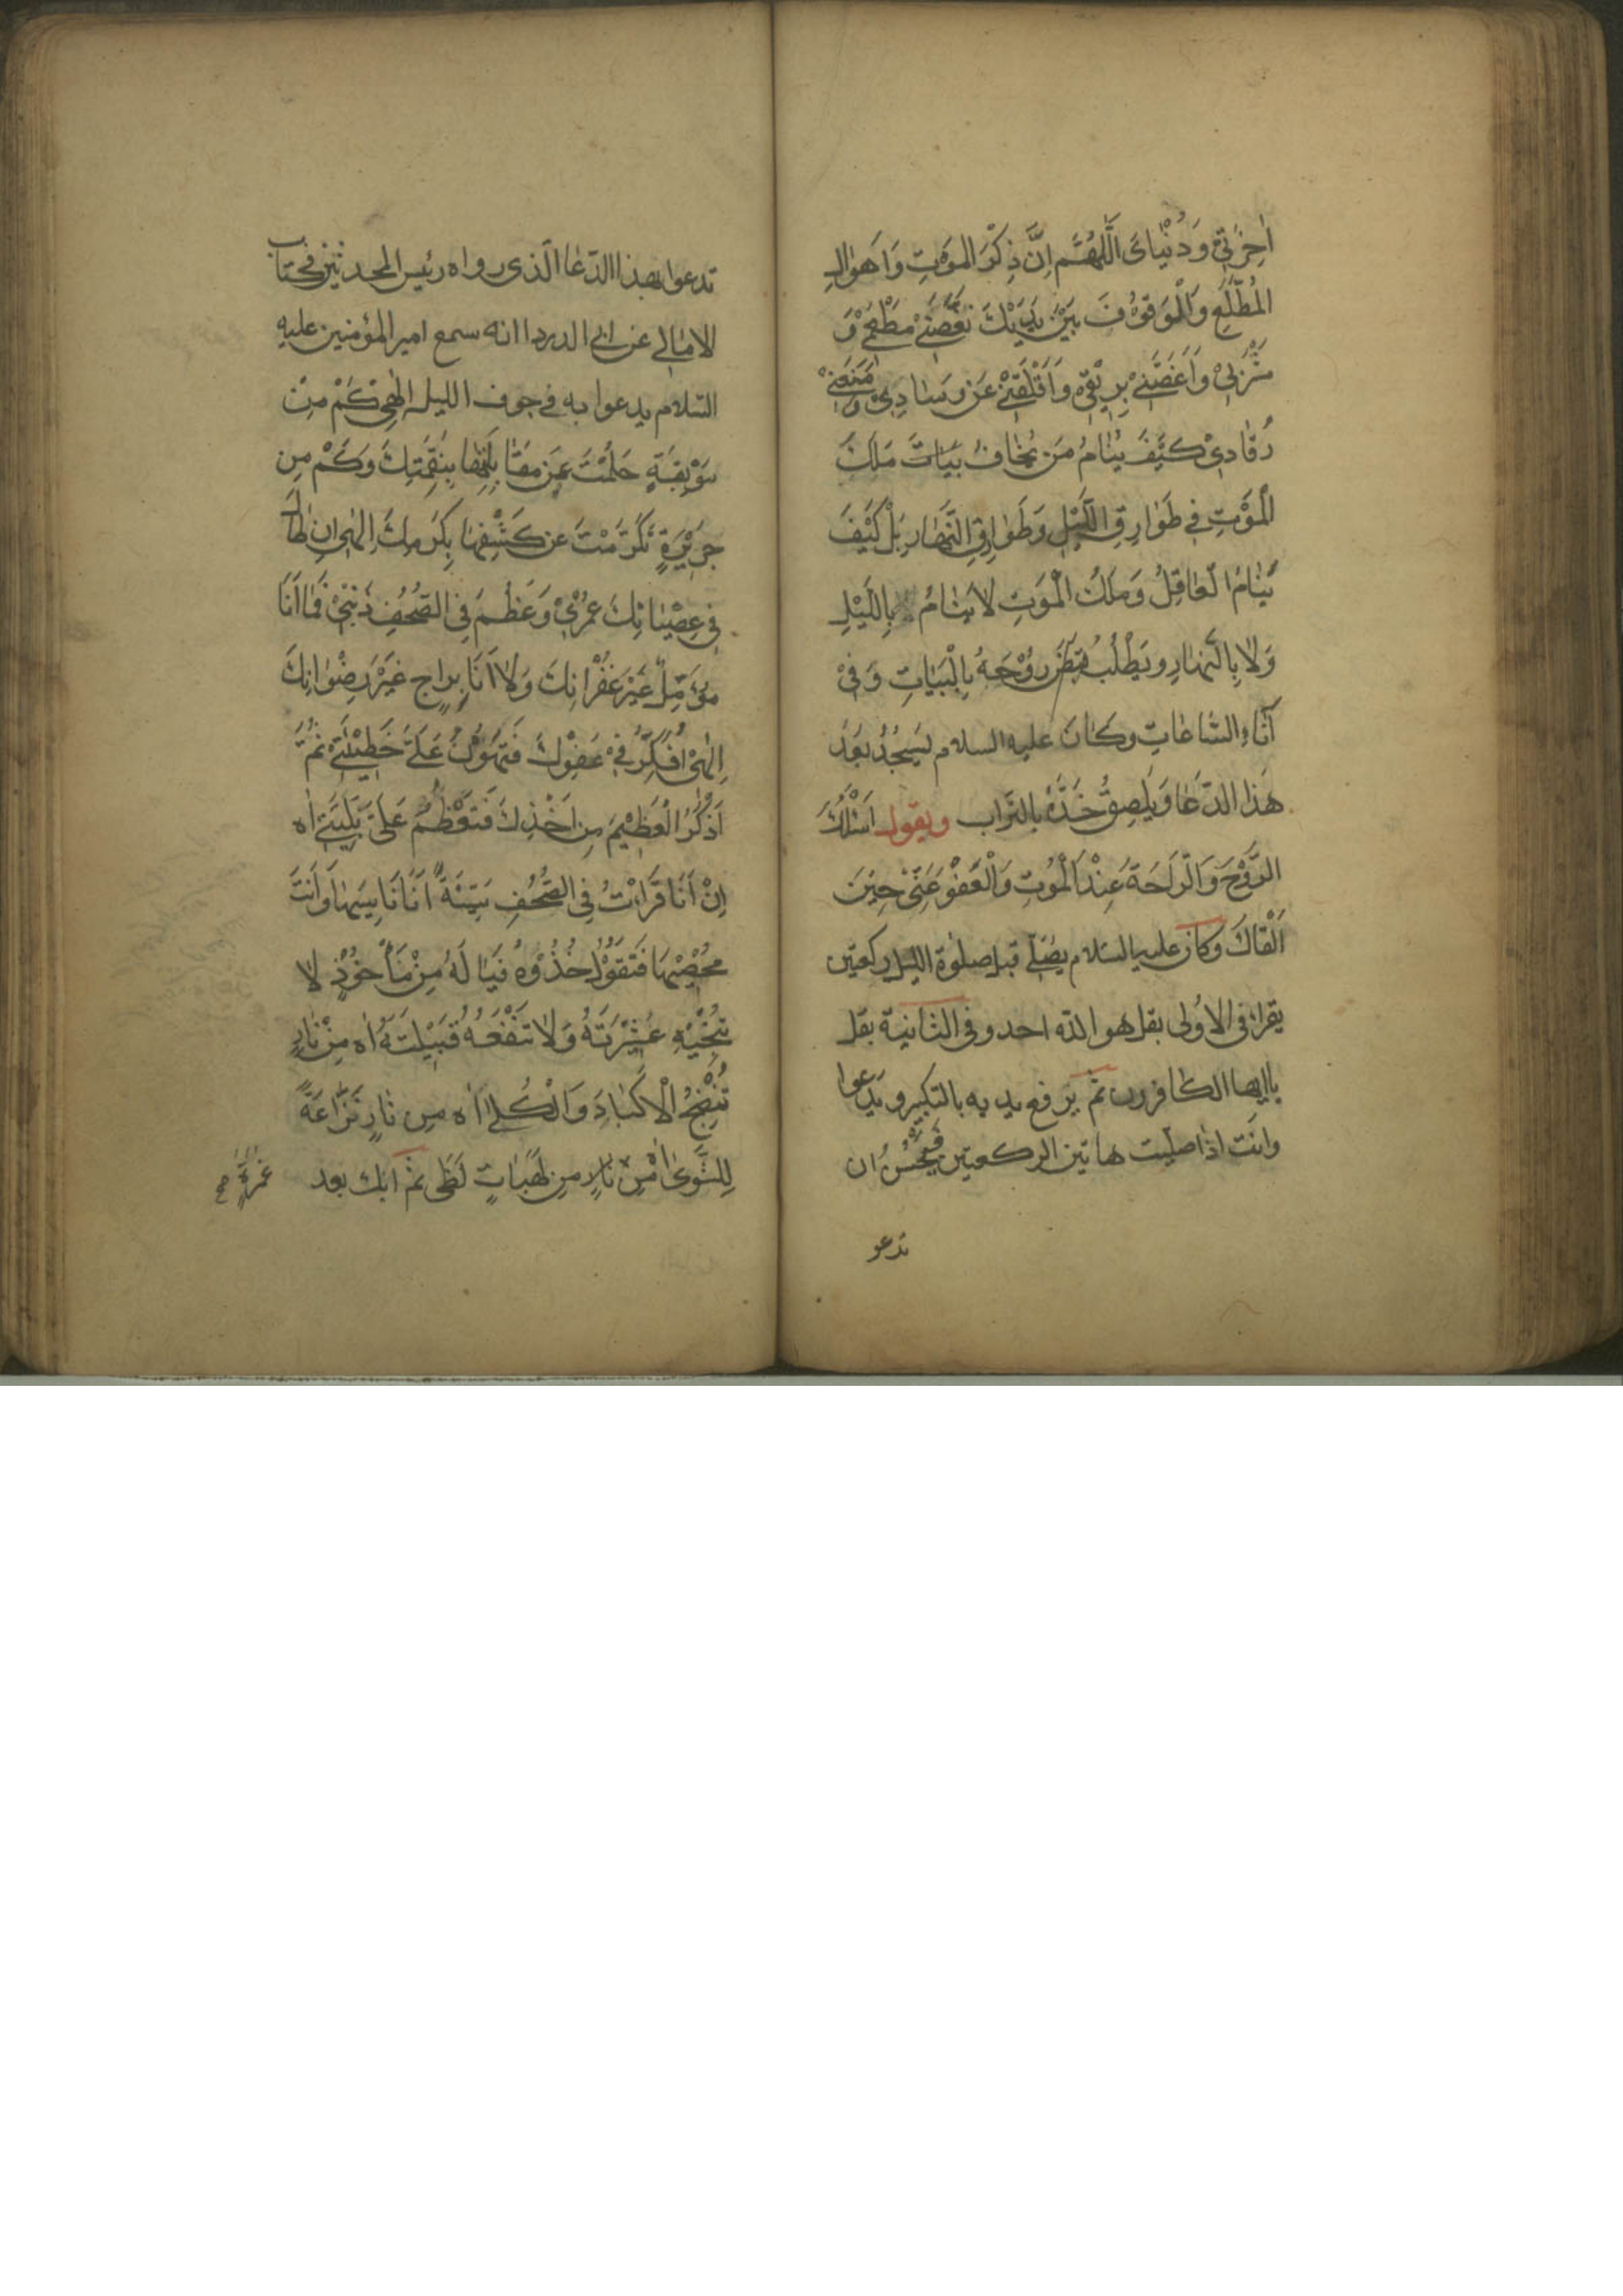 اٰخِرَتِيْ وَدُنْيَايَ اَللّٰهُمَّ اِنَّ ذِكْرَ المَوْتِ وَاَهْوَالِ
المُطَّلَعِ وَالْمَوْقُوْفَ بَيْنَ يَدَيْكَ نَغَّصَنِيْ مَطْعَمِيْ وَ
مَشْرَبِيْ وَاَغَصَّنِيْ بِرِيْقِيْ وَاَقْلَقَنِيْ عَنْ وِسَادِيْ وَمَنَعَنِيْ
رُقَادِيْ كَيْفَ يَنَامُ مَنْ يَخَافُ بَيَاتَ مَلَكِ
الْمَوْتِ فِي طَوَارِقِ اللَّيْلِ وَطَوَارِقِ النَّهَارِ بَلْ كَيْفَ
يَنَامُ الْعَاقِلُ وَمَلَكُ الْمَوْتِ لَا يَنَامُ بِاللَّيْلِ
وَلَا بِالنَّهَارِ وَيَطْلُبُ قَبْضَ رُوْحِهُ بِالْبَيَاتِ وَفِيْ
آنَاءِ السَّاعَاتِ وكَانَ عليه السلام يَسْجُدُ بَعْدَ
هَذَا الدّعَا وَيُلْصِقُ خَدَّهُ بالتّراب ويقول اَسْئَلُكَ
الرَّوْحَ وَالرَّاحَةَ عِنْدَ الْمَوْتِ وَالْعَفْوَ عَنِّيْ حِيْنَ
اَلْقَاكَ وكان عليه السلام يصلّي قبل صلوة الليل ركعتين
يقراء في الاُولى بقل هو الله احد وفي الثانية بقل
يا ايها الكافرون ثم يرفع يديه بالتكبير ويدعوا
وانت اذا صليت هاتين الركعتين فيحسُن ان
تدعو
تدعوا بهذا الدّعا الّذي رواه رئيس المحدثين في كتاب
الامالي عن ابي الدرداانه سمع امير المؤمنين عليه
السّلام يدعوا به في جوف الليل اِلٰهِيْ كَمْ مِنْ
مَوْبِقَةٍ حَلُمْتَ عَنْ مُقَابَلَتِهَا بِنِقْمَتِكَ وَكَمْ مِن
جَرِيْرَةٍ تَكَرَّمْتَ عن كَشْفِهَا بِكَرَمِكَ اِلٰهِي اِن طَالَ
فِي عِصْيَانِكَ عُمْرِيْ وَعَظُمَ فِي الصُّحُفِ ذَنْبِيْ فَمَا اَنَا
مُؤَمِّلٌ غَيْرَ غُفْرَانِكَ وَلَا اَنَا بِرَاجٍ غَيْرَ رِضْوَانِكَ
اِلٰهِيْ اُفَكِّرُ فِيْ عَفْوِكَ فَتَهُوْنُ عَلَيَّ خَطِيْئَتِيْ ثُمَّ
اَذْكُرُ الْعَظِيْمَ مِن اَخْذِكَ فَتَعْظُمُ عَلَيَّ بَلِيَّتِي اٰه
اِنْ اَنَا قَرَأْتُ فِي الصُّحُفِ سَيِّئَةً اَنَا نَاسِيهَا وَاَنْتَ
مُحْصِيْهَا فَتَقُوْلُ خُذُوْهُ فَيَا لَهُ مِنْ مَأْخُوْذٍ لَا
تُنْجِيْهِ عَشِيْرَتُهُ وَلَا تَنْفَعُهُ قَبِيْلَتُهُ اٰه مِنْ نَارٍ
تُنْضِجُ الْاَكْبَادَ وَالْكُلٰى اٰه مِن نَارٍ نَزَّاعَةً
لِلشَّوٰى اٰه مِن نَارٍ مِن لَهَبَاتِ لَظٰى ثم ابك بعد
غمرةٍ صح